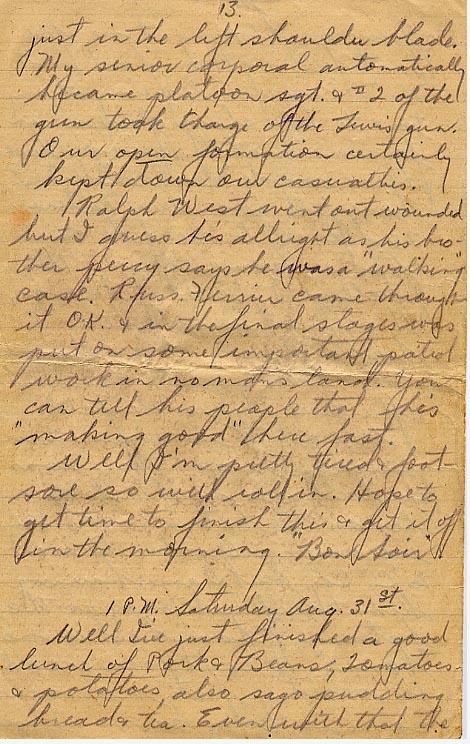 13.
just in the left shoulder blade.
My senior corporal automatically
became platoon sgt. & # 2 of the
gun took charge of the Lewis gun.
Our open formation certainly
kept down our casualties.
Ralph West went out wounded
but I guess he's allright as his bro-
ther percy says he was a "walking"
case. Russ. Ferrier came through
it O.K. & in the final stages was
put on some important patrol
work in no mans land. You
can tell his people that he's
"making good" here fast.
Well I'm pretty tired & foot-
sore so will roll in. Hope to
get time to finish this & get it off
in the morning. "Bon Soir"
1 P.M. Saturday Aug. 31st.
Well I've just finished a good
lunch of Pork & Beans, Tomatoes
& potatoes, also sago pudding
bread & tea. Even with that the